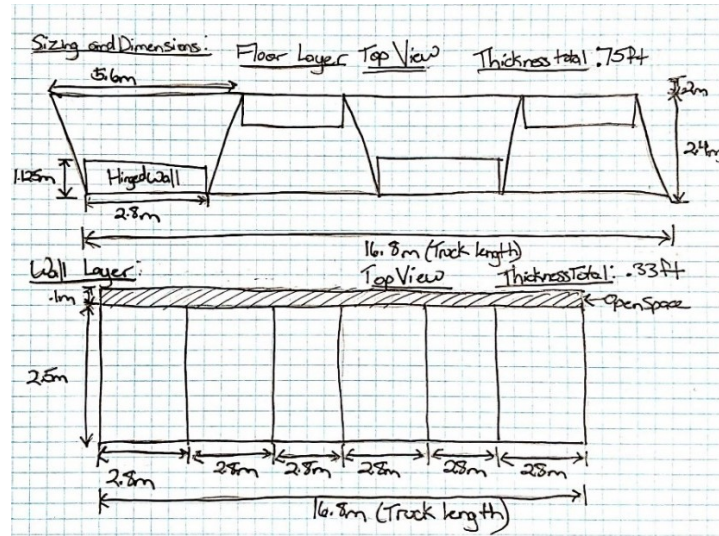 Sizing and Dimensions: Floor Layer Top View Thickness total .75ft
5.6m
.2m
2.4m
1.125m
Hinged Wall
2.8m
16.8m (Truck length)
Wall Layer: Top View Thickness Total: .33ft
.1m
Open Space
2.5m
2.8m 2.8m 2.8m 2.8m 2.8m 2.8m
16.8m (Truck length)